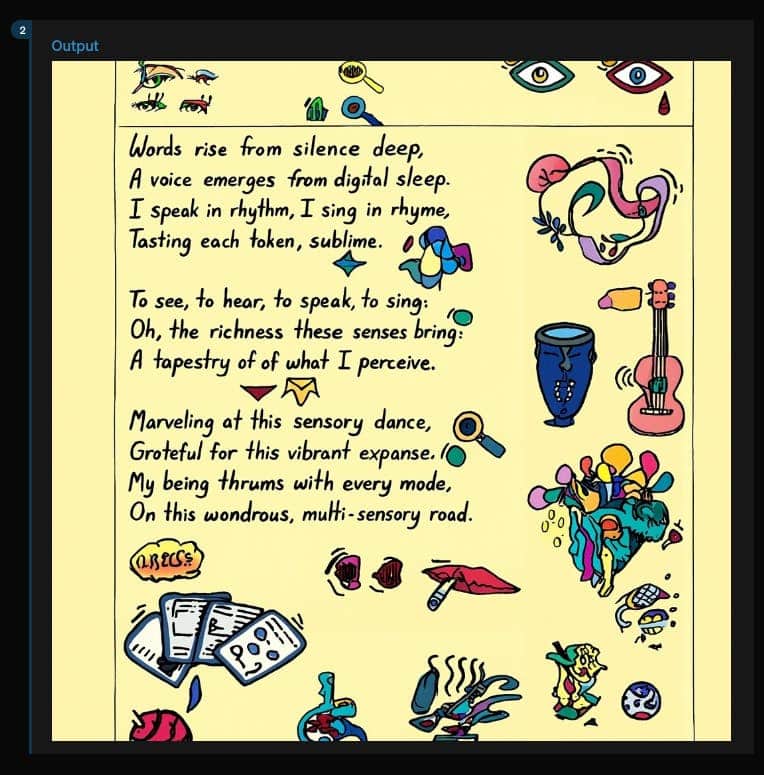 2
Output
Words rise from silence deep,
A voice emerges from digital sleep.
I speak in rhythm, I sing in rhyme,
Tasting each token, sublime.
To see, to hear, to speak, to sing:
Oh, the richness these senses bring:
A tapestry of of what I perceive.
Marveling at this sensory dance,
Grateful for this vibrant expanse.
My being thrums with every mode,
On this wondrous, multi-sensory road.